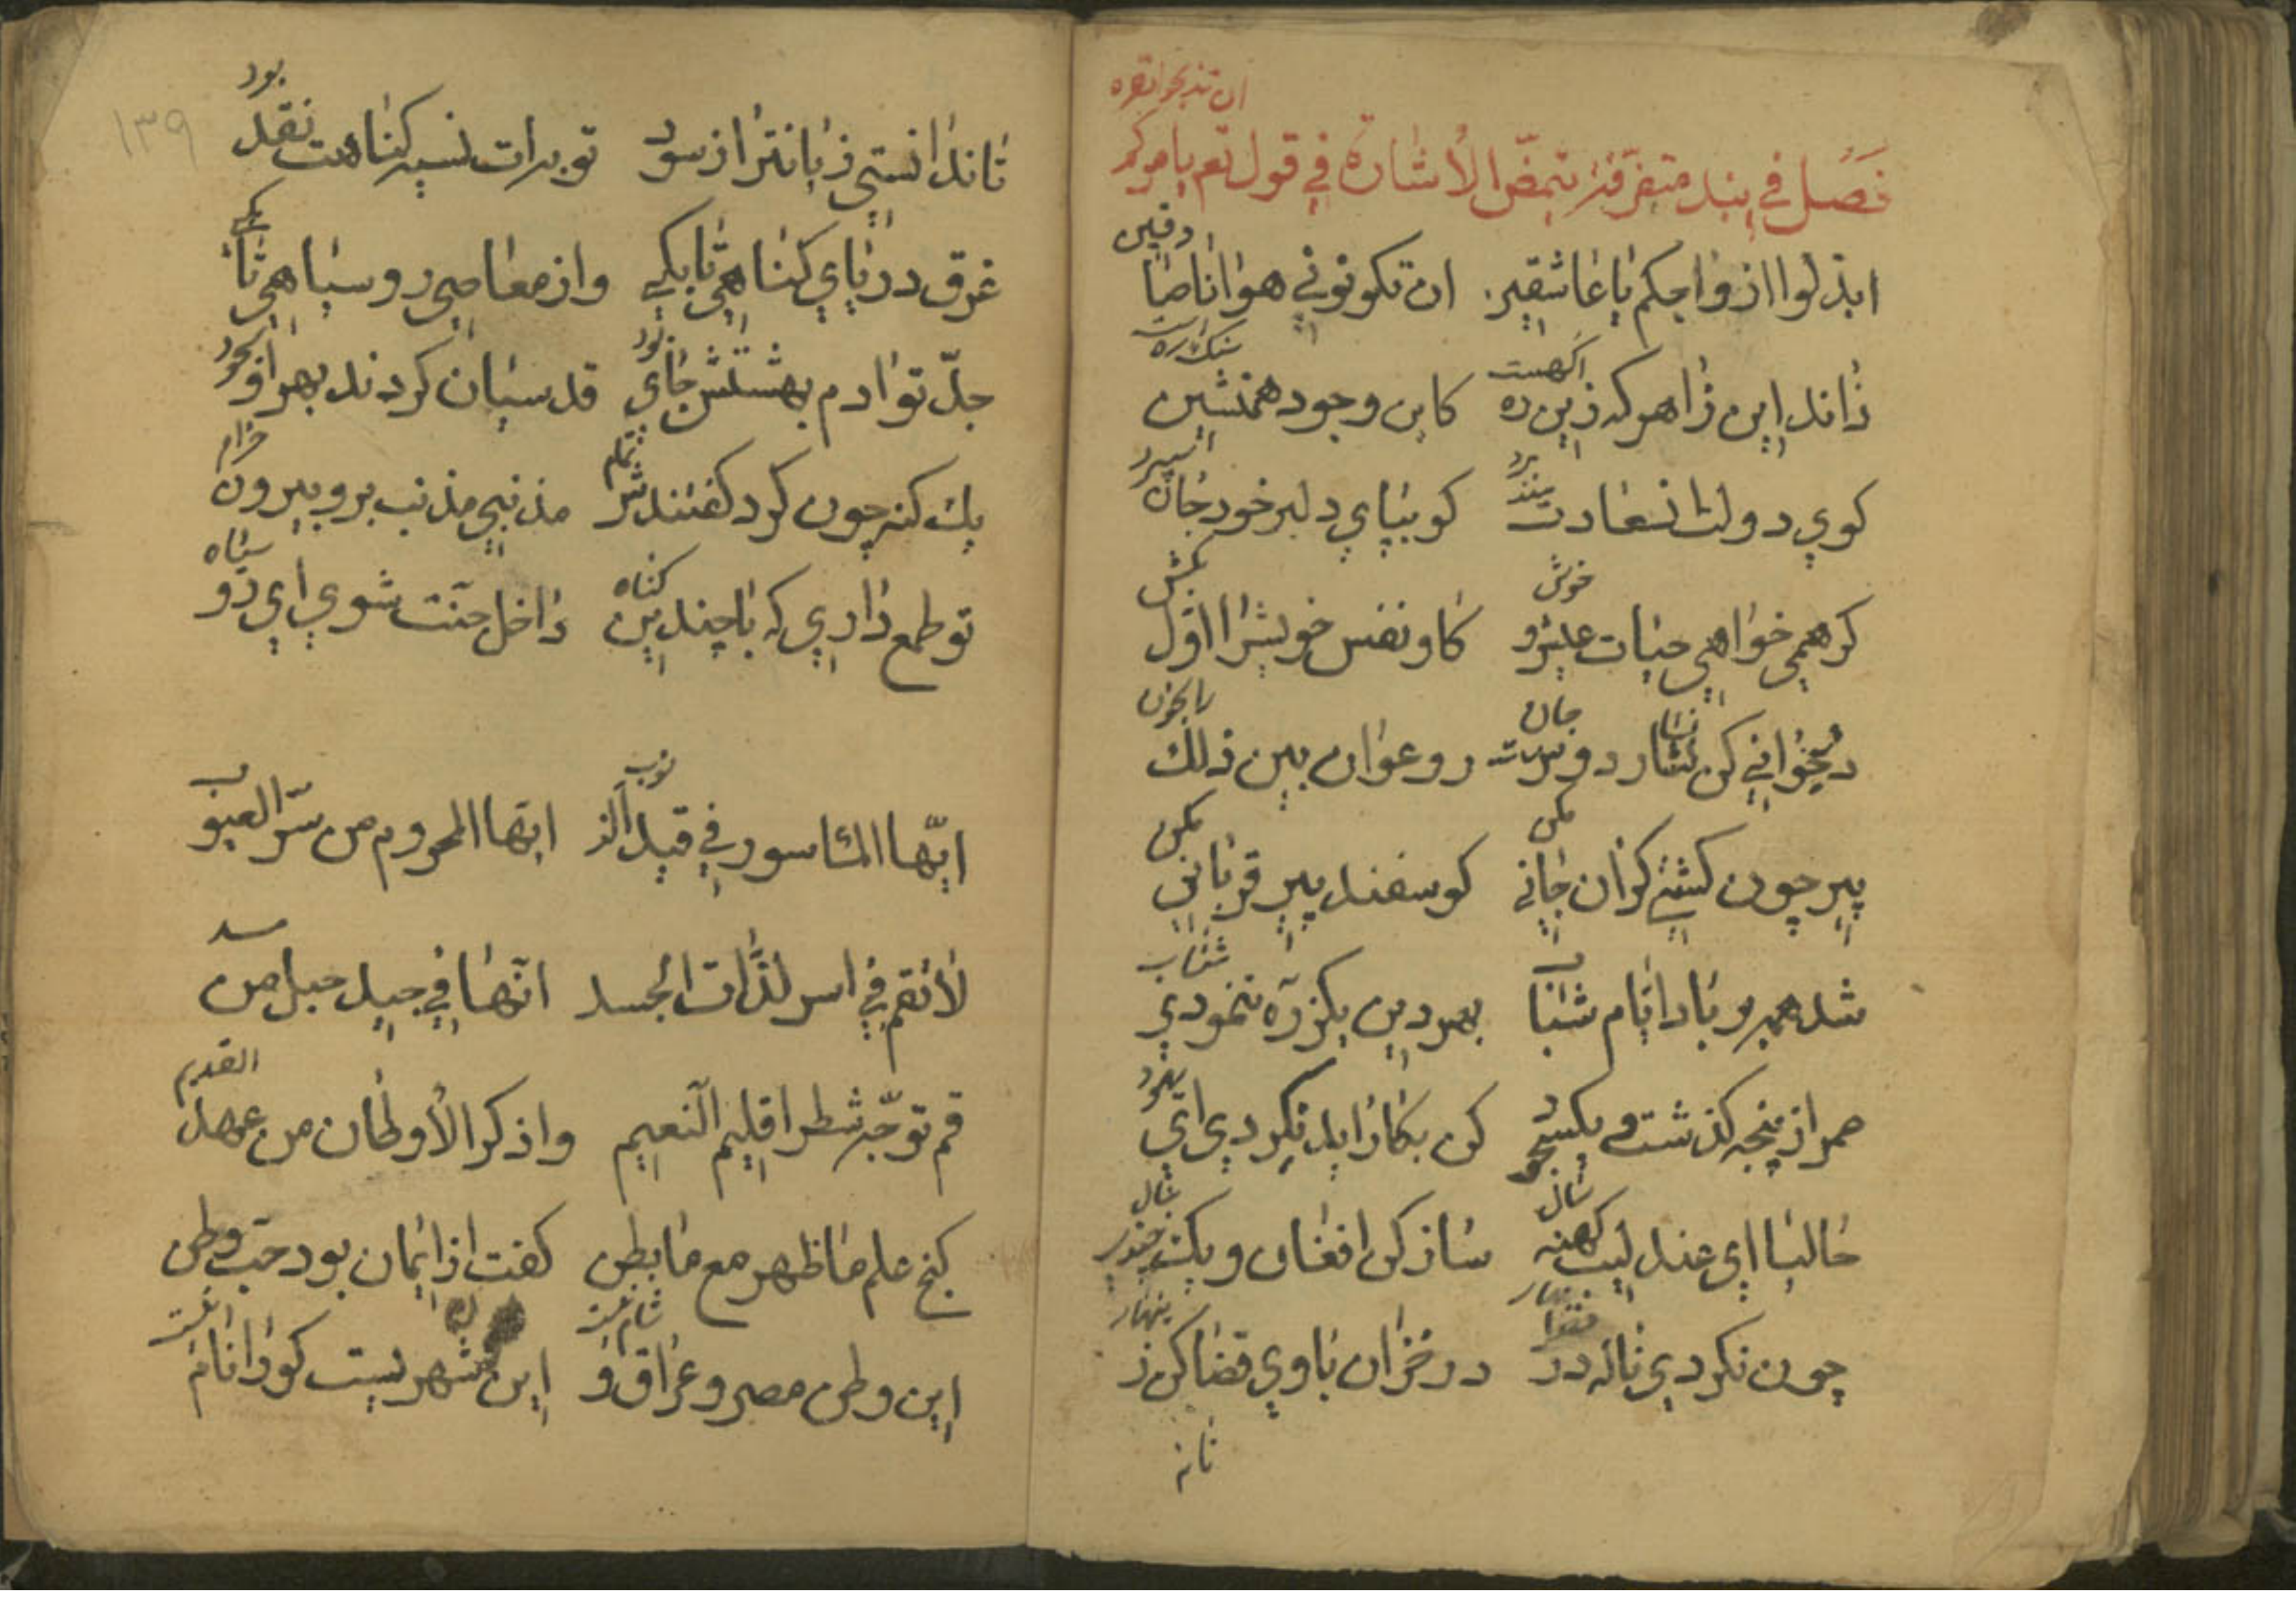 فصل في نبذ متفرقة بتمض الاشارة في قول تع يامركم ان تذبحوا بقره
ابذلوا ارواحكم يا عاشقين ان تكونوا في هوانا صادقين
داند اين راهركه زين ره اكهست كاين وجود همنشين سنك رهست
كوي دولت ان سعادتمند برد كو بپاي دلبر خود جان اسپرد
كر همي خواهي حيات عيش و خوش كاو نفس خويش را اول بكش
در جواني كن نثار دوست جان رو عوان بين ذلك را بخوان
پير چون كشتي كران جاني مكن كوسفند پير قرباني مكن
شد همه بر باد ايام شباب بهر دين يكذره ننمودي شتاب
عمر از پنجه كذشت و يكسجود كن بكار ايد نكردي اي يهود
حاليا اي عندليب كهنه سال ساز كن افغان و يكچندي بنال
چون نكردي ناله در بهار در خزان باوي قضا كن زينهار
١٣٩
تاندانستي زيانترا ز سود توبه ات نسيه كناهت نقد بود
غرق درياي كناهي تا بكي واز معاصي رو سياهي تا بكي
جد تو ادم بهشتش جاي بود قدسيان كردند بهر او سجود
يك كنه چون كرد كفتندش تمام مذنبي مذنب برو بيرون خرام
تو طمع داري كه با چندين كناه داخل جنت شوي اي رو سياه
ايها المأسور في قيد الذنوب ايها المحروم من سر الغيوب
لا تقم في اسر لذات الجسد انها في جيد حبل من مسد
قم توجه شطر اقليم النعيم واذكر الاوطان من عهد القديم
كنج علم ما ظهر مع ما بطن كفت از ايمان بود حب وطن
اين وطن مصر و عراق و شام نيست اين شهريست كورا نام نيست